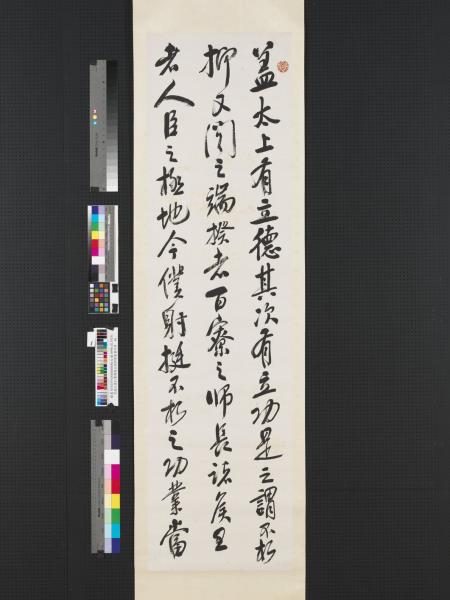 蓋太上有立德其次有立功是之謂不朽
抑又聞之端揆者百寮之師長諸侯王
者人臣之極地今僕射挺不朽之功業當